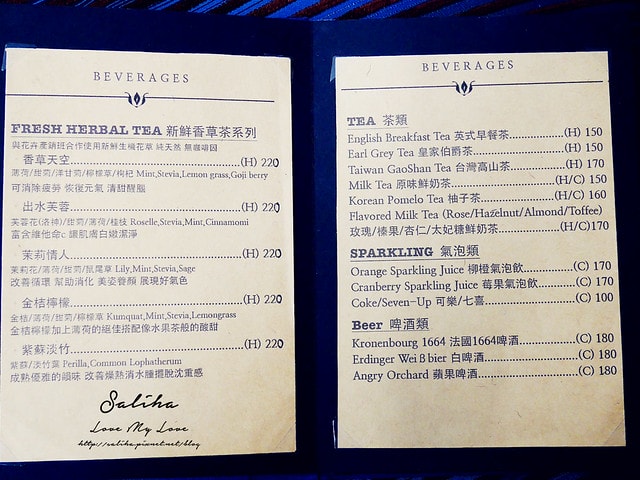 BEVERAGES
FRESH HERBAL TEA 新鮮香草茶系列
與花卉產銷班合作使用新鮮生機花草 純天然 無咖啡因
香草天空..........(H) 220
薄荷/甜菊/洋甘菊/檸檬草/枸杞 Mint,Stevia,Lemon grass,Goji berry
可消除疲勞 恢復元氣 清甜醒腦
出水芙蓉..........(H) 220
芙蓉花(洛神)/甜菊/薄荷/桂枝 Roselle,Stevia,Mint,Cinnamomi
富含維他命c 讓肌膚白嫩潔淨
茉莉情人..........(H) 220
茉莉花/薄荷/甜菊/鼠尾草 Lily,Mint,Stevia,Sage
改善循環 幫助消化 美姿養顏 展現好氣色
金桔檸檬..........(H) 220
金桔/薄荷/甜菊/檸檬草 Kumquat,Mint,Stevia,Lemongrass
金桔檸檬加上薄荷的絕佳搭配像水果茶般的酸甜
紫蘇淡竹..........(H) 220
紫蘇/淡竹葉 Perilla,Common Lophatherum
成熟優雅的韻味 改善燥熱消水腫擺脫沈重感
Saliha
Love My Love
http://saliha.pixnet.net/blog
BEVERAGES
TEA 茶類
English Breakfast Tea 英式早餐茶..........(H) 150
Earl Grey Tea 皇家伯爵茶..........(H) 150
Taiwan GaoShan Tea 台灣高山茶..........(H) 170
Milk Tea 原味鮮奶茶..........(H/C) 150
Korean Pomelo Tea 柚子茶..........(H/C) 160
Flavored Milk Tea (Rose/Hazelnut/Almond/Toffee)
玫瑰/榛果/杏仁/太妃糖鮮奶茶..........(H/C)170
SPARKLING 氣泡類
Orange Sparkling Juice 柳橙氣泡飲..........(C) 170
Cranberry Sparkling Juice 莓果氣泡飲..........(C) 170
Coke/Seven-Up 可樂/七喜..........(C) 100
Beer 啤酒類
Kronenbourg 1664 法國1664啤酒..........(C) 180
Erdinger Wei ß bier 白啤酒..........(C) 180
Angry Orchard 蘋果啤酒..........(C) 180